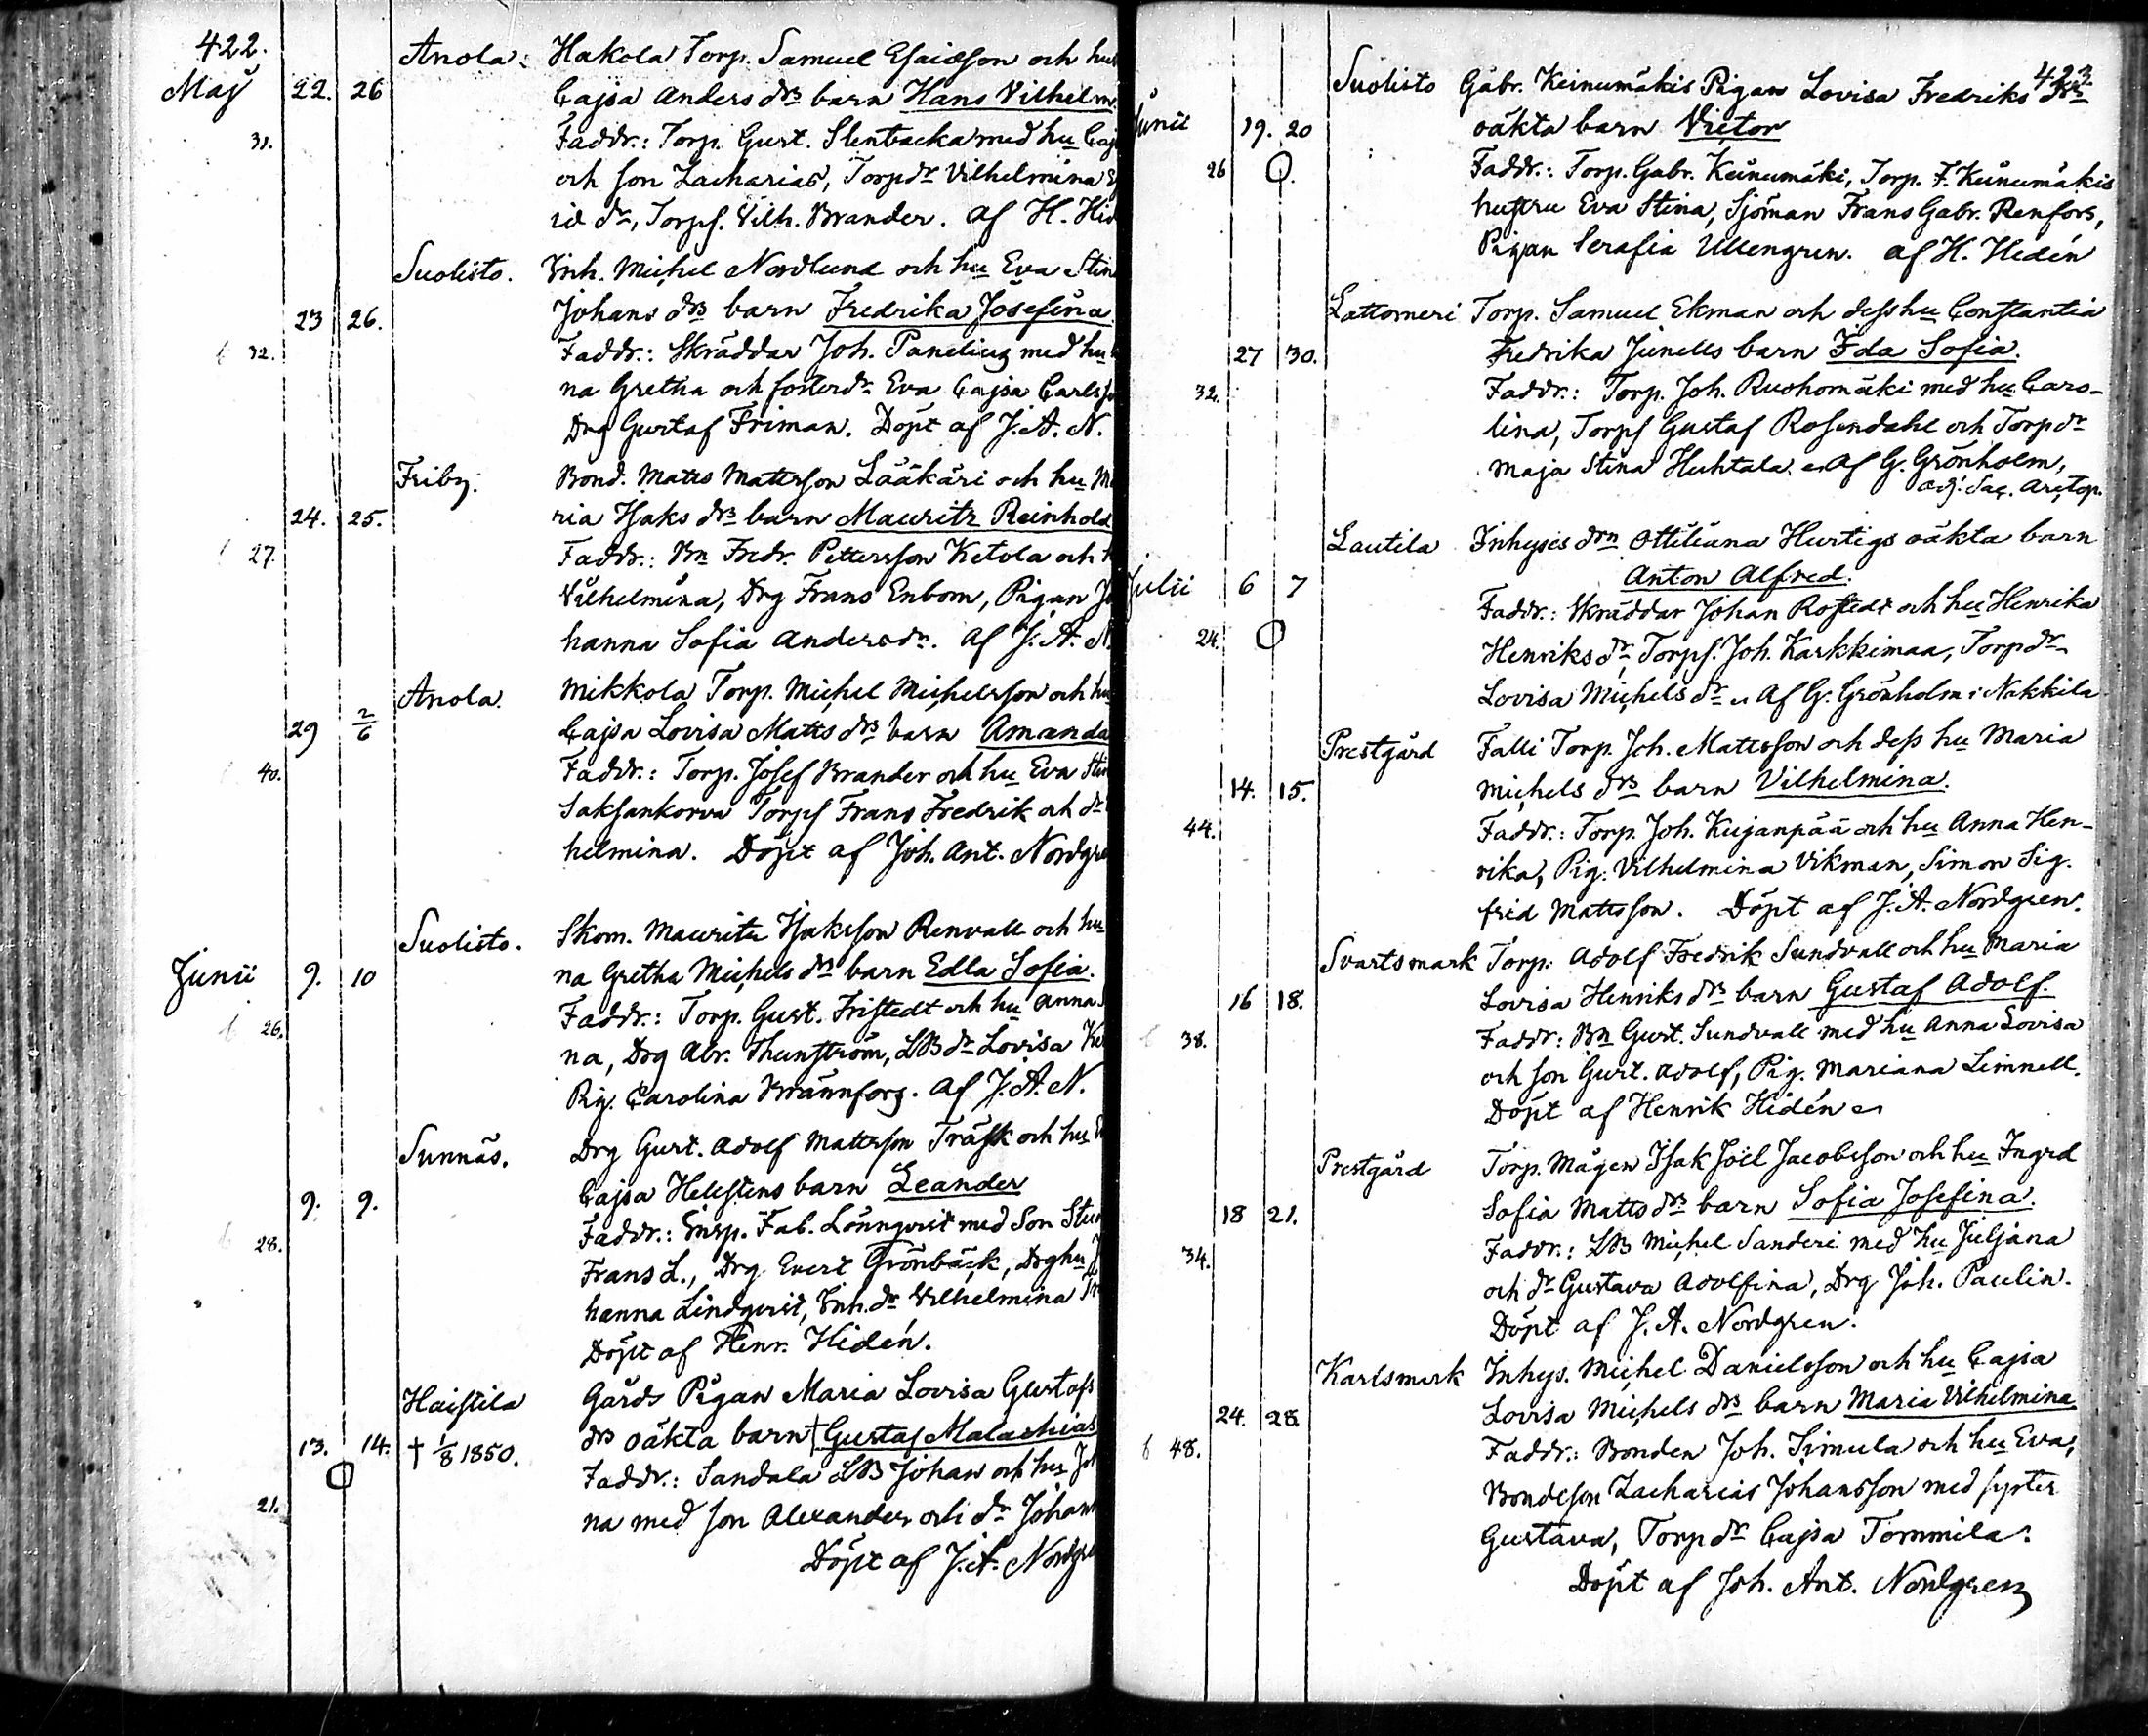 422.
Anola: Hakola Torp. Samuel Esaiesson och hu
Maij 22. 26 Cajsa Anders drs barn Hans Vilhelm
31. Faddr.: Torp. Gust. Stenbacka med hu Caj
och son Zacharias, Torpdr Vilhelmina
ie dr, Torps. Vilh. Brander. af H. Hid
Suolisto. Inh. Michel Nordlund och hu Eva Stin
23 26. Johans drs barn Fredrika Josefina
32. Faddr.: Skräddar Joh. Panelius med hu
na Gretha och fosterdr Eva Cajsa Carls
Drg Gustaf Friman. Döpt af J. A. N.
Friby. Bond. Matts Mattsson Lääkäri och hu Ma
24. 25. ria Isaks drs barn Mauritz Reinhold
27. Faddr.: Bn Fredr. Pettersson Ketola och h
Vilhelmina, Drg Frans Enbom, Pigan Jo
hanna Sofia Andersdr. af J. A. N.
Anola. Mikkola Torp. Michel Michelsson och hu
29 2/6 Cajsa Lovisa Matts drs barn Amanda
40. Faddr.: Torp. Josef Brander och hu Eva Stin
Saksankorva Torps Frans Fredrik och dr
helmina. Döpt af Joh. Ant. Nordgre
Suolisto. Skom. Mauritz Isaksson Renvall och hu
Junii 9. 10 na Gretha Michels drs barn Edla Sofia.
26. Faddr.: Torp. Gust. Fristedt och hu Anna
na, Drg Abr. Thunström, LBdr Lovisa Ke
Pig. Carolina Brännfors. af J. A. N.
Sunnäs. Drg Gust. Adolf Mattsson Träsk och hu
9. 9. Cajsa Hellstens barn Leander
28. Faddr.: Insp. Fab. Lönnqvist med Son Stu
Frans L., Drg Evert Grönbäck, Drghu J
hanna Lindqvist, Inh. dr Vilhelmina
Döpt af Henr. Hidén.
Haistila Gårds Pigan Maria Lovisa Gustafs
13. 14. † 1/8 1850. drs oäkta barn † Gustaf Malachias
21. Faddr.: Sandala LB Johan och hu Joh
na med son Alexander och dr Johan
Döpt af J. A. Nordgre
423
Suolisto Gabr. Keinumäkis Pigan Lovisa Fredriks drs
Junii 19. 20 oäkta barn Victor
26 Faddr.: Torp. Gabr. Keinumäki, Torp. F. Keinumäkis
hustru Eva Stina, Sjöman Frans Gabr. Renfors,
Pigan Serafia Ullengren. af H. Hedén
Lattomeri Torp. Samuel Ekman och dess hu Constantia
27 30. Fredrika Junells barn Ida Sofia.
32. Faddr.: Torp. Joh. Ruohomäki med hu Caro-
lina, Torps Gustaf Rosendahl och Torpdr
Maja Stina Huhtala. Af G. Grönholm,
adj. Sac. Arctop.
Lautila Inhyses drn Ottiliana Hurtigs oäkta barn
Julii 6 7 Anton Alfred.
Faddr.: Skräddar Johan Rostedt och hu Henrika
24. Henriks dr, Torps. Joh. Karkkimaa, Torpdr
Lovisa Michels dr. Af G. Grönholm i Nakkila
Prestgård Falli Torp. Joh. Mattsson och dess hu Maria
14. 15. Michels drs barn Vilhelmina.
44. Faddr.: Torp. Joh. Kujanpää och hu Anna Hen-
rika, Pig. Vilhelmina Vikman, Simon Sig.
frid Mattsson. Döpt af J. A. Nordgren.
Svartsmark Torp. Adolf Fredrik Sundvall och hu Maria
16 18. Lovisa Henriks drs barn Gustaf Adolf.
38. Faddr: Bn Gust. Sundvall med hu Anna Lovisa
och son Gust. Adolf, Pig. Mariana Limnell.
Döpt af Henrik Hidén
Prestgård Torp. Mågen Isak Joël Jacobsson och hu Ingrd
18 21. Sofia Matts drs barn Sofia Josefina.
34. Faddr.: LB Michel Sanderi med hu Juljana
och dr Gustava Adolfina, Drg Joh. Paulin.
Döpt af J. A. Nordgren.
Karlsmark Inhys. Michel Danielsson och hu Cajsa
24. 28. Lovisa Michels drs barn Maria Vilhelmina
48. Faddr.: Bonden Joh. Simula och hu Eva,
Bondeson Zacharias Johansson med syster
Gustava, Torpdr Cajsa Tommila.
Döpt af Joh. Ant. Nordgren